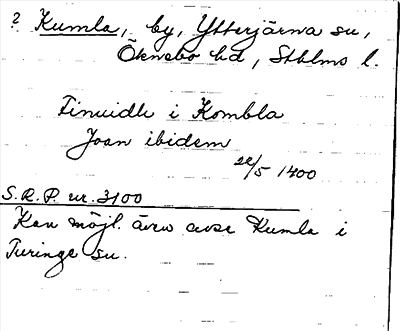 ? Kumla, by, Ytterjärna sn,
Öknebo hd, Sthlms l.
Finuidh i Kombla
Joan ibidem
22/5 1400
S.R.P. nr. 3100
Kan möjl. även avse Kumla i
Turinge sn.